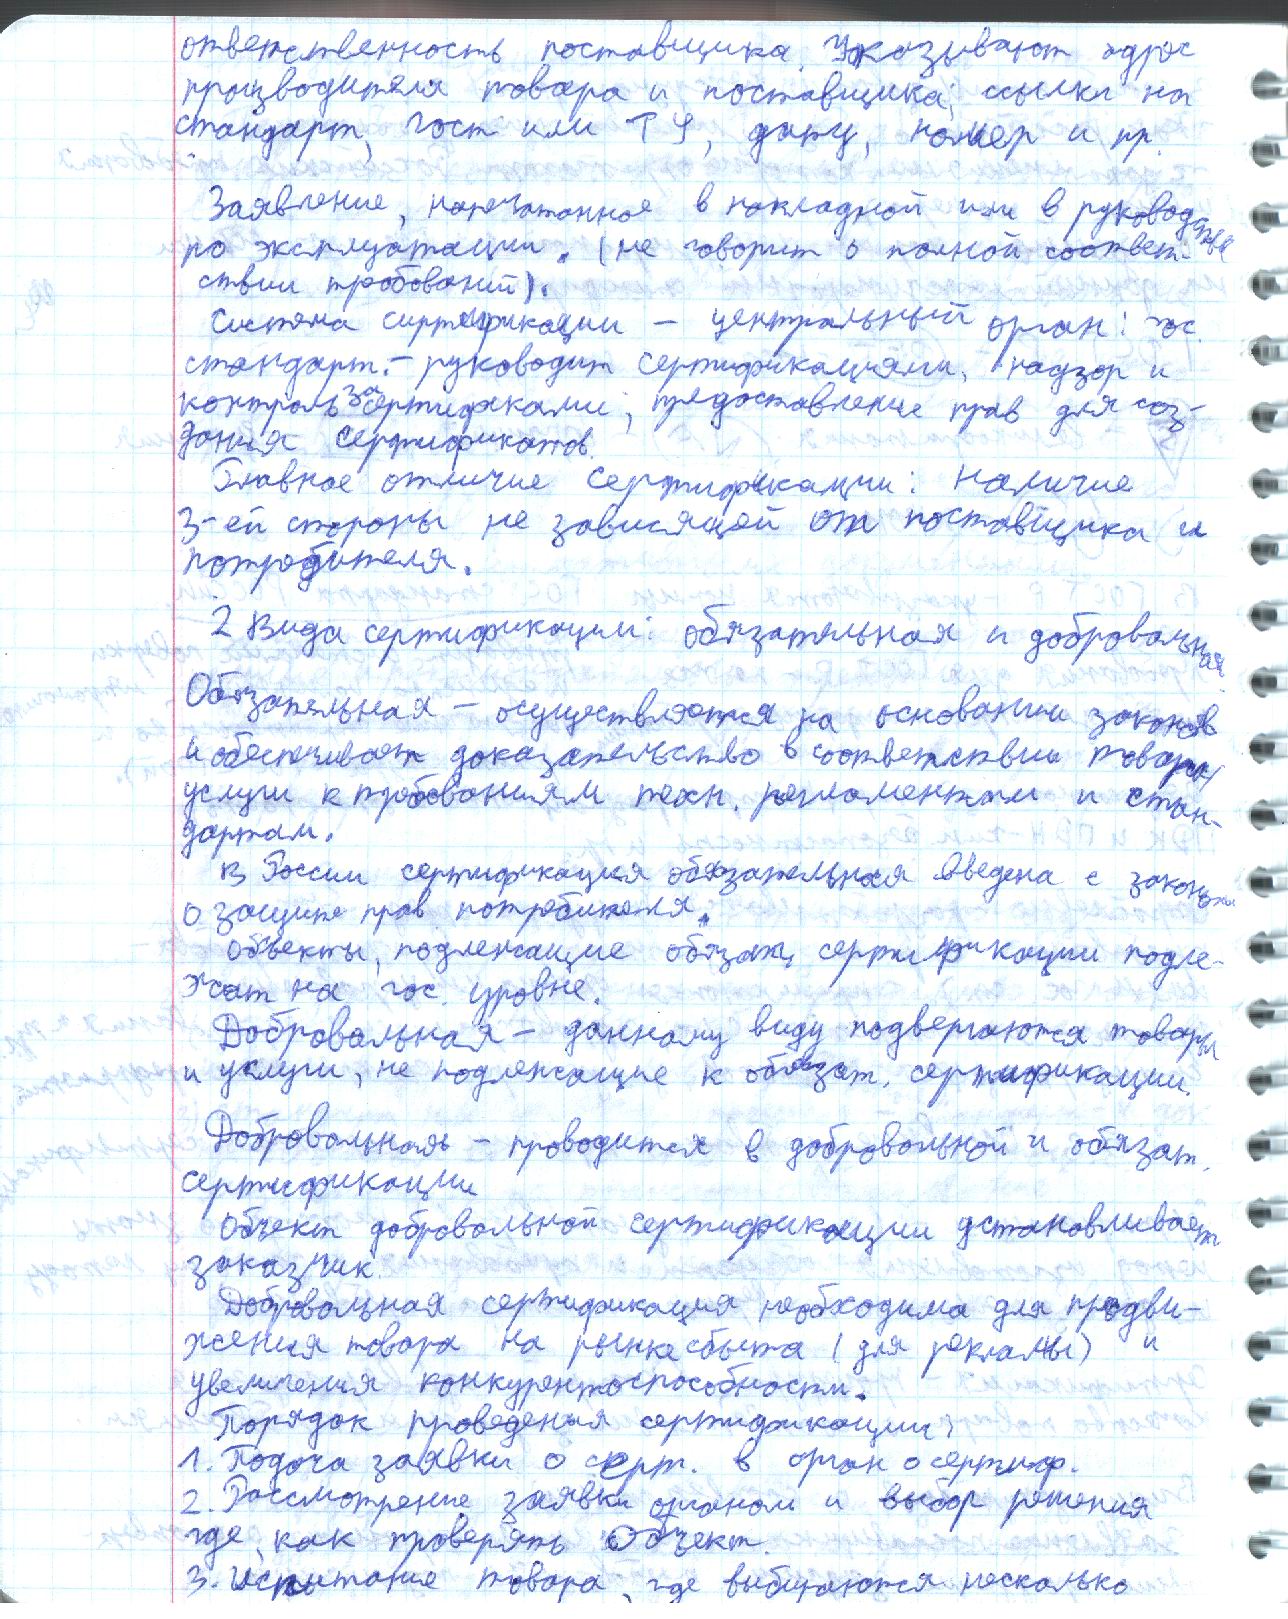 ответственность поставщика. Указывают адрес
производителя товара и поставщика; ссылки на
стандарт, гост или ТУ, дату, номер и пр.
Заявление, напечатанное в накладной или в руководстве
по эксплуатации. (не говорит о полной соответ-
ствии требований).
Система сиртификации – центральный орган: гос.
стандарт. – руководит сертификациями, надзор и
контроль за сертификами; предоставление прав для соз-
дания сертификатов.
Главное отличие сертификации: Наличие
3-ей стороны не зависящей от поставщика и
потребителя.
2 Вида сертификации: обязательная и добровольная
Обязательная – осуществляется на основании законов
и обеспечивает доказательство в соответствии товара/
услуги к требованиям техн. регламентам и стан-
дартам.
В России сертификация обязательная введена с законом
о защите прав потребителя.
Объекты, подлежащие обязат. сертификации подле-
жат на гос. уровне.
Добровольная – данному виду подвергаются товары
и услуги, не подлежащие к обязат. сертификации.
Добровольная – проводится в добровольной и обязат.
сертификации
Объект добровольной сертификации устанавливает
заказчик.
Добровольная сертификация необходима для продви-
жения товара на рынке сбыта (для рекламы) и
увеличения конкурентоспособности.
Порядок проведения сертификации:
1. Подача заявки о серт. в орган о сертиф.
2. Рассмотрение заявки органом и выбор решения
где, как проверять объект.
3. Испытание товара, где выбираются несколько